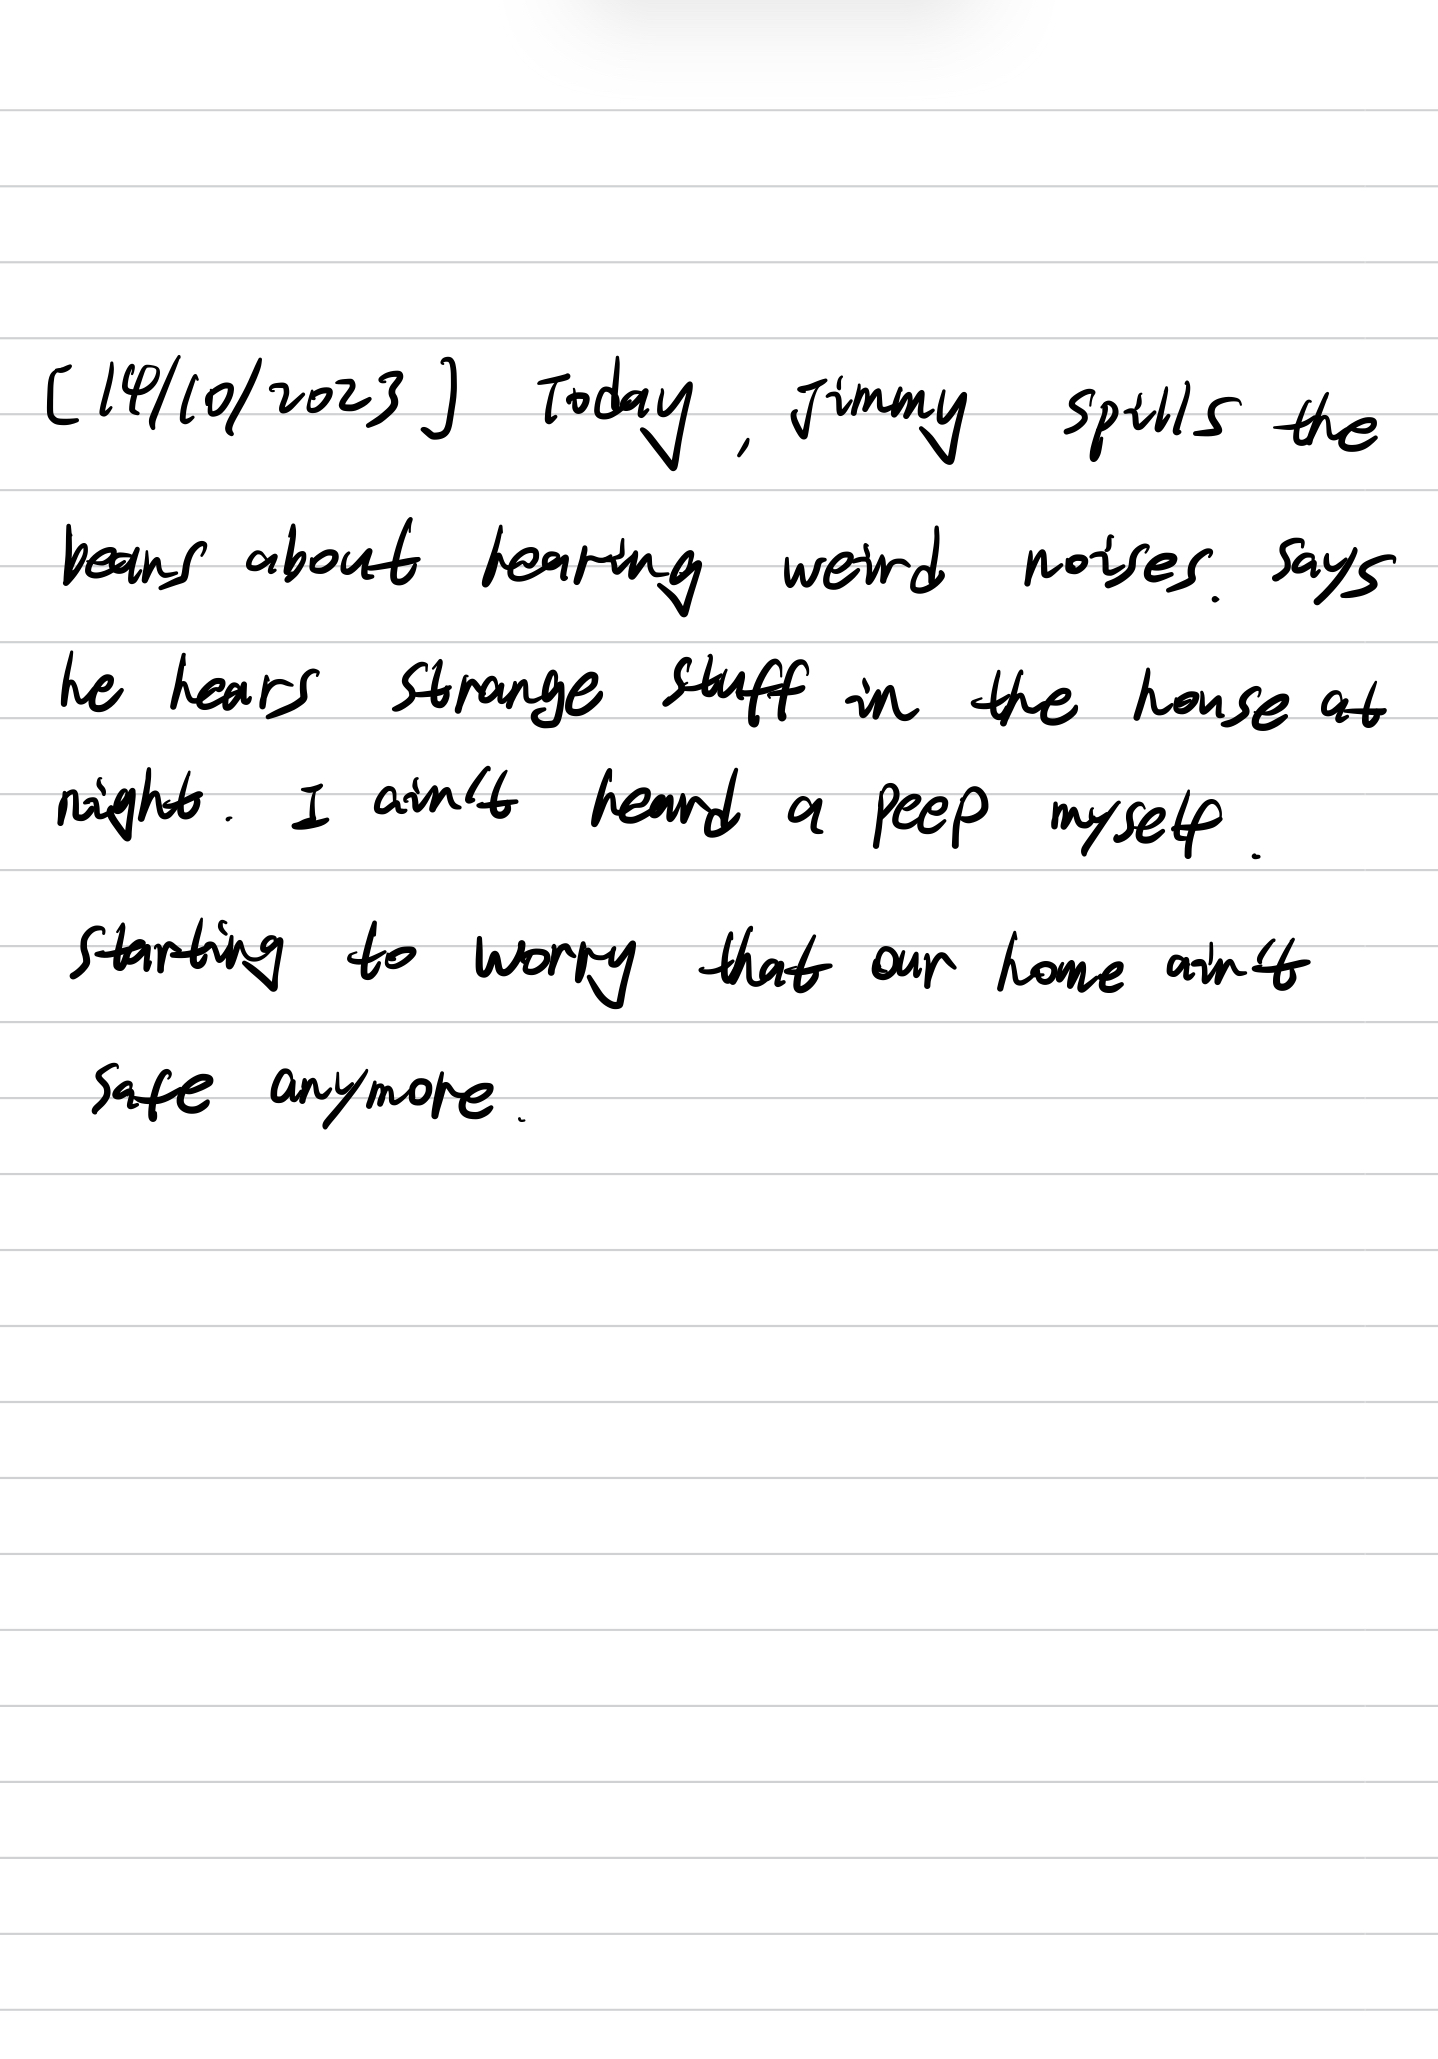 [14/10/2023] Today, Jimmy spills the
beans about hearing weird noises. Says
he hears strange stuff in the house at
night. I ain't heard a peep myself.
Starting to worry that our home ain't
safe anymore.